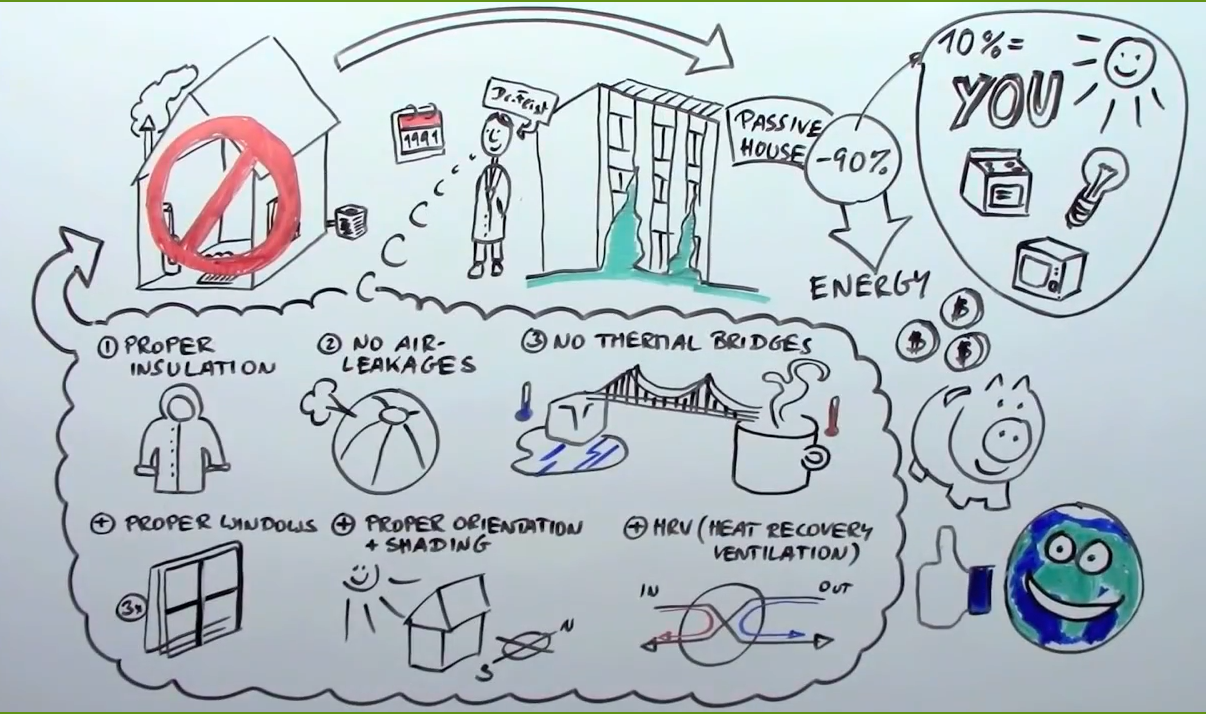 10%=
YOU
Dr. Feist
1991
PASSIVE
HOUSE
-90%
ENERGY
B
B
B
① PROPER
INSULATION
② NO AIR-
LEAKAGES
③ NO THERMAL BRIDGES
+ PROPER WINDOWS
3x
+ PROPER ORIENTATION
+ SHADING
N
S
+ HRV (HEAT RECOVERY
VENTILATION)
IN
OUT